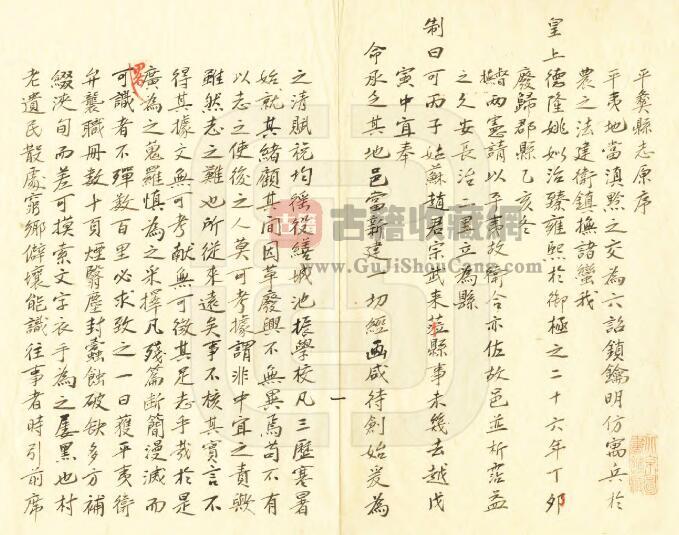 平彝縣志原序
平夷地當滇黔之交為六詔鎖鑰明仿寓兵於
農之法建衛鎮撫諸蠻我
皇上德隆姚姒治臻雍熙於御極之二十六年丁卯
廢歸郡縣乙亥冬
督撫兩憲請以平夷故衛合亦佐故邑並析霑益
之久安長治二里立為縣
制曰可丙子姑蘇趙君宗武来蒞縣事未幾去越戊
寅中宜奉
命承乏其地邑當新建一切經畫咸待創始爰為
一
之清賦税均徭役繕城池振學校凡三歷寒暑
始就其緒顧其間因革廢興不無異焉苟不有
以志之使後之人莫可考據謂非中宜之責歟
雖然志之難也所從来遠矣事不核其實言不
得其據文無可考獻無可徵其足志乎哉於是
廣為之蒐羅慎為之采擇凡殘篇斷簡漫滅而
可識者不殫數百里必求致之一日獲平夷衛
弁襲職冊数十頁煙翳塵封蠹蝕破缺多方補
綴浹旬而差可摸索文字衣手為之屢黑也村
老遺民散處窮鄉僻壤能識往事者時引前席
古籍
古籍收藏网
www.GuJiShouCang.com